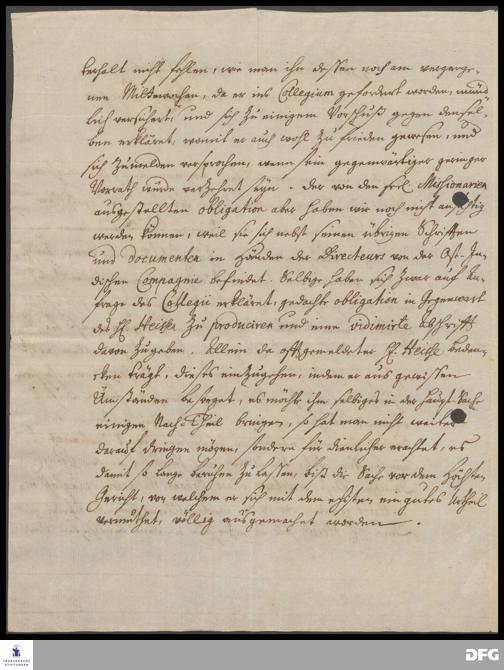 terhalt nicht fehlen, wie man ihn dessen noch am vergange-
nen Mittwochen, da er ins Collegium gefordert worden, münd-
lich versichert, und sich zu einigem Vorschuß gegen densel-
ben erkläret, womit er auch wohl zu frieden gewesen, und
sich zumelden versprochen, wenn sein gegenwärtiger geringer
Vorrath würde verzehret seyn. Der von den sel. Missionarien
ausgestellten obligation aber haben wir noch nicht ansichtig
werden können, weil sie sich nebst seinen übrigen Schrifften
und documenten in Händen der Directeurs von der Ost-In-
dischen Compagnie befindet. Selbige haben sich zwar auf An-
frage des Collegii erkläret, gedachte obligation in Gegenwart
des H. zu produciren und eine vidimirte Abschrifft
davon zugeben. Allein da offtgemeldeter H. beden-
cken trägt, dieses einzugehen, indem er aus gewissen
Umständen besorget, es möchte ihm selbiges in der Haupt-Sache
einigen Nach-Theil bringen, so hat man nicht weiter
darauf dringen mögen, sondern für dienlicher erachtet, es
damit so lange beruhen zu lassen, biß die Sache vor dem Höchsten
Gericht, von welchem er sich mit dem ehesten ein gutes Urtheil
vermuthet, völlig ausgemachet worden.
FRANCKESCHE
STIFTUNGEN
DFG